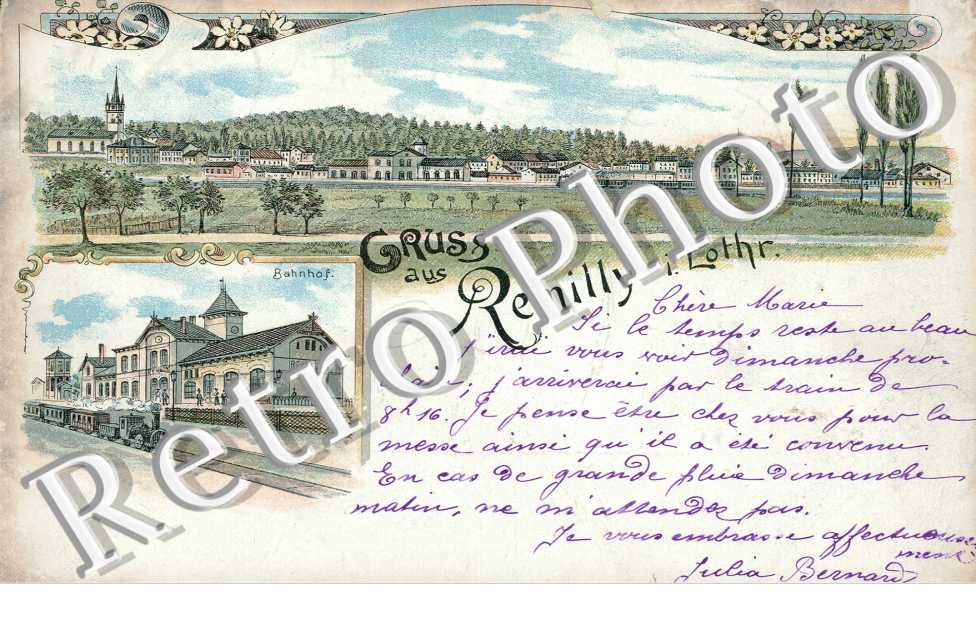 Gruss
aus
Remilly i. Lothr.
Bahnhof.
Chère Marie
Si le temps reste au beau
j'irai vous voir dimanche pro-
chain; j'arriverai par le train de
8h 16. Je pense être chez vous pour la
messe ainsi qu'il a été convenu.
En cas de grande pluie dimanche
matin, ne m'attendez pas.
Je vous embrasse affectueuse-
ment
Julia Bernard
Retro Photo